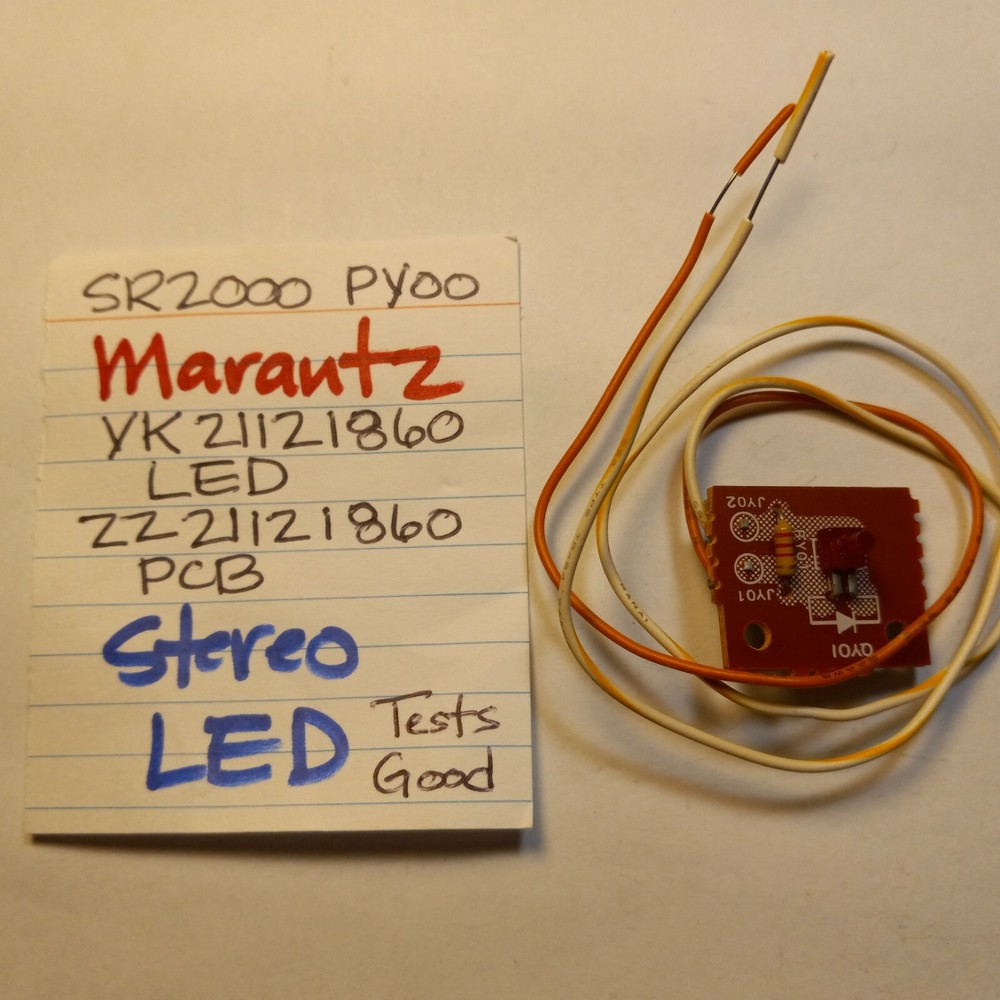 SR2000 PY00
Marantz
YK21121860
LED
ZZ21121860
PCB
Stereo
LED
Tests
Good
JY02
JY01
RY01
QY01